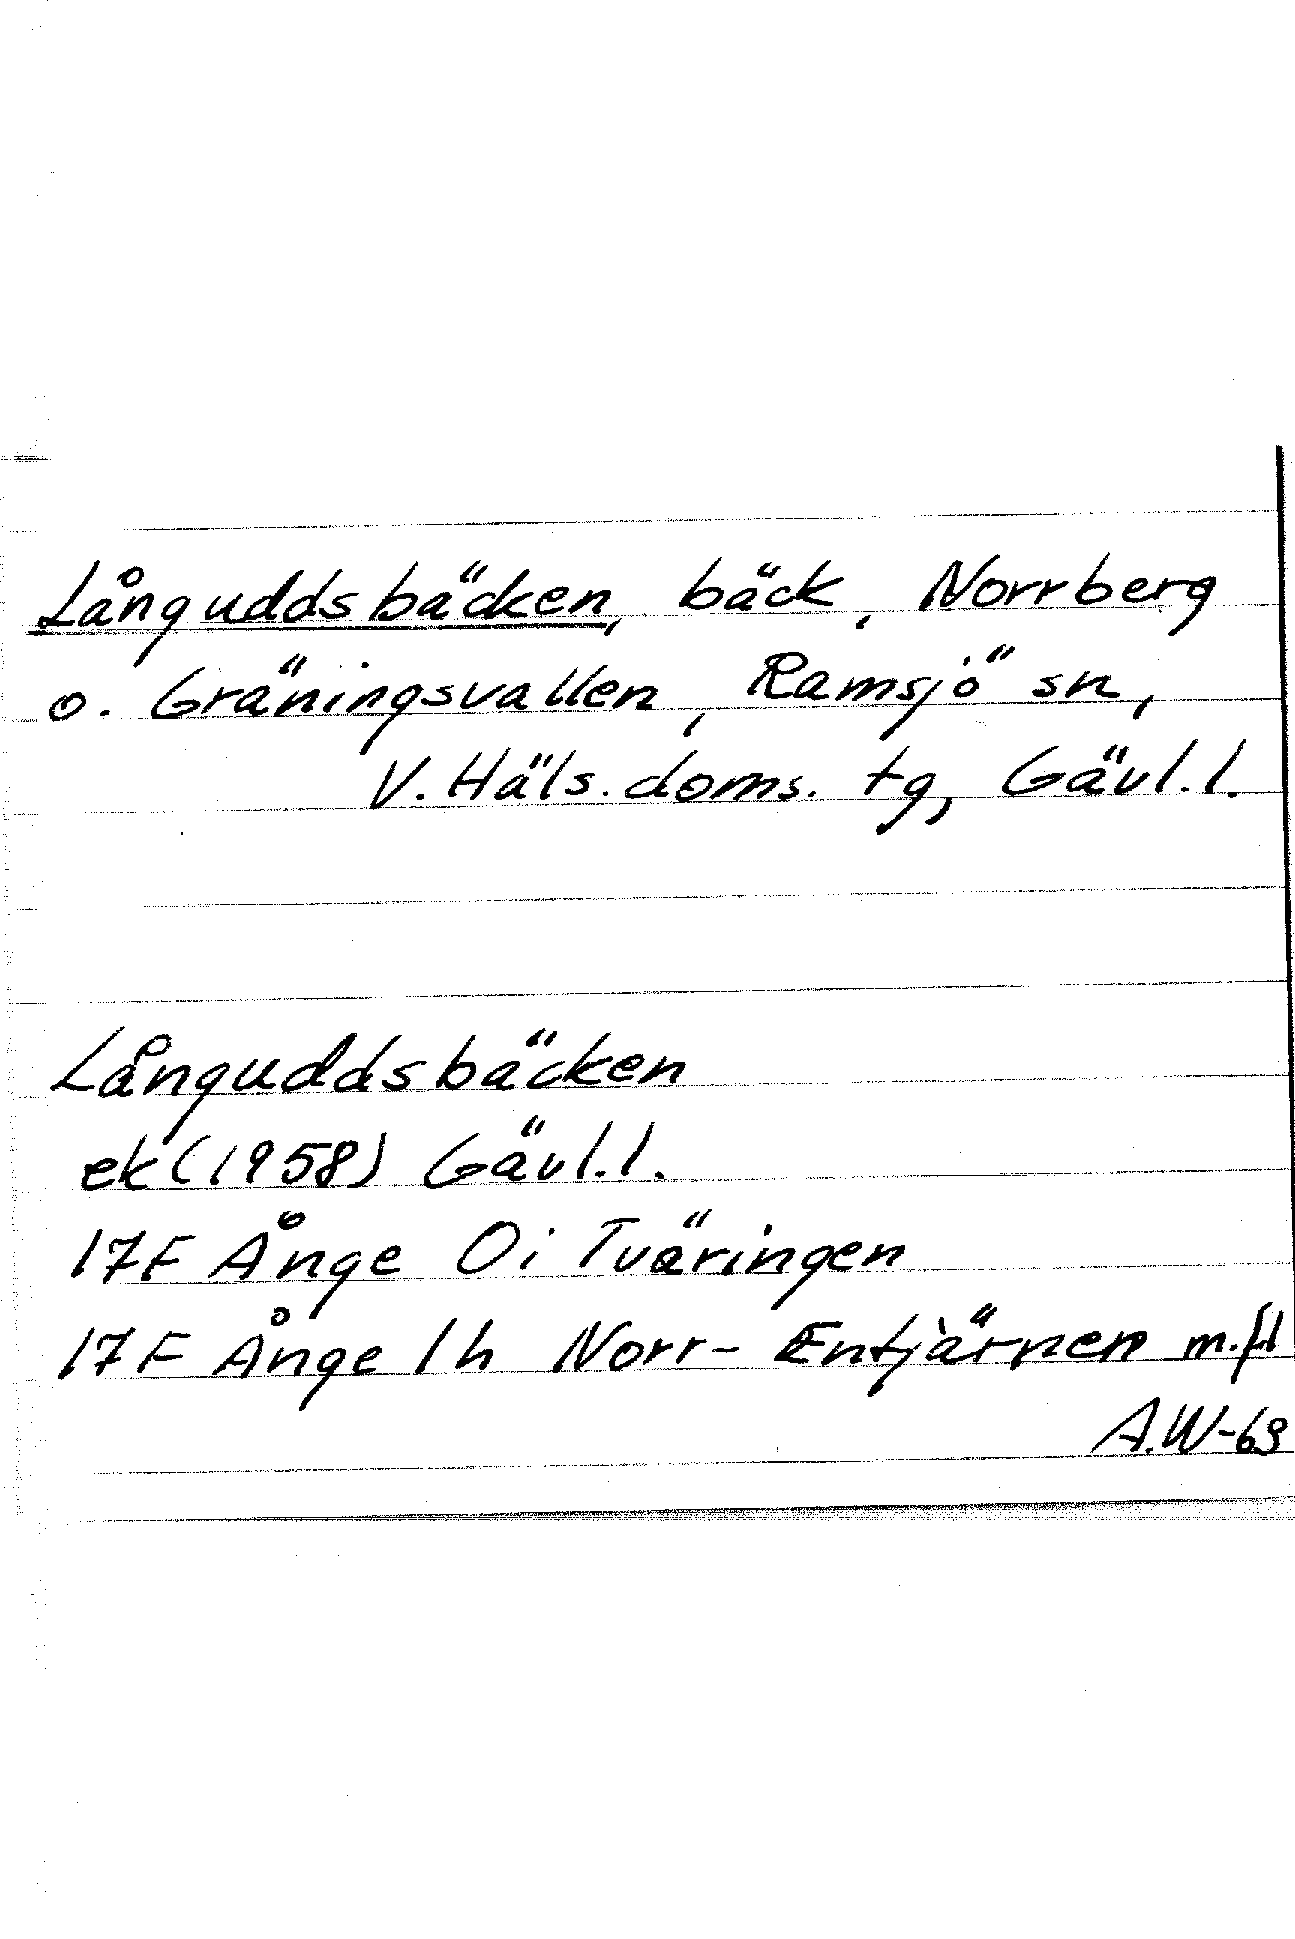 Långuddsbäcken, bäck, Norrberg
o. Gräningsvallen, Ramsjö sn,
V. Häls. doms. tg, Gävl. l.
Långuddsbäcken
ek (1958) Gävl. l.
17F Ånge 0i Tväringen
17F Ånge 1h Norr-Entjärnen m.fl
A.W-63